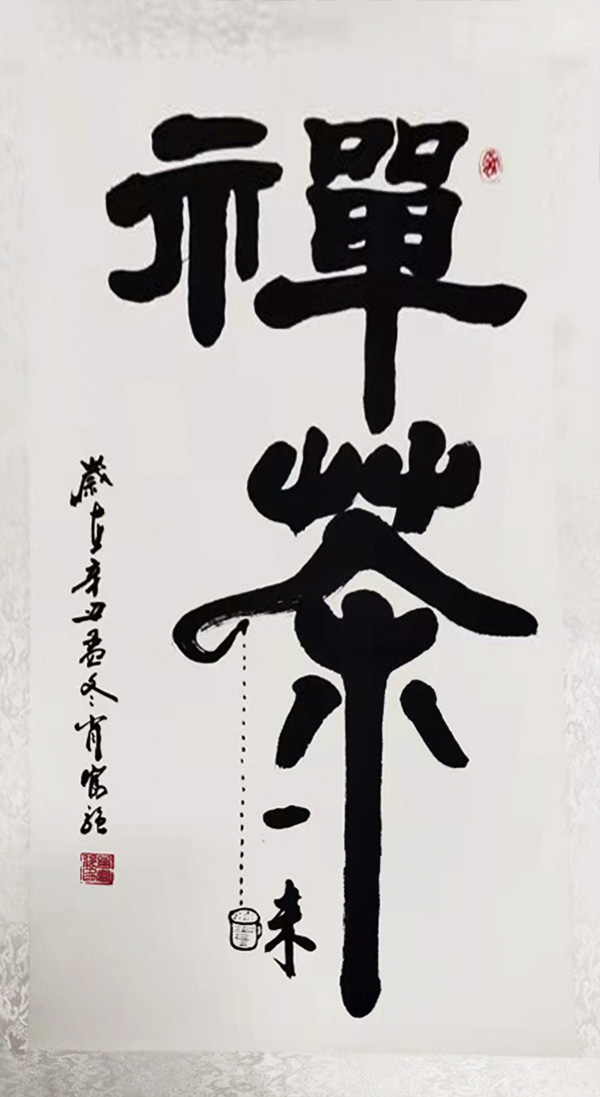 禪茶
一味
歲在辛丑孟冬肖家